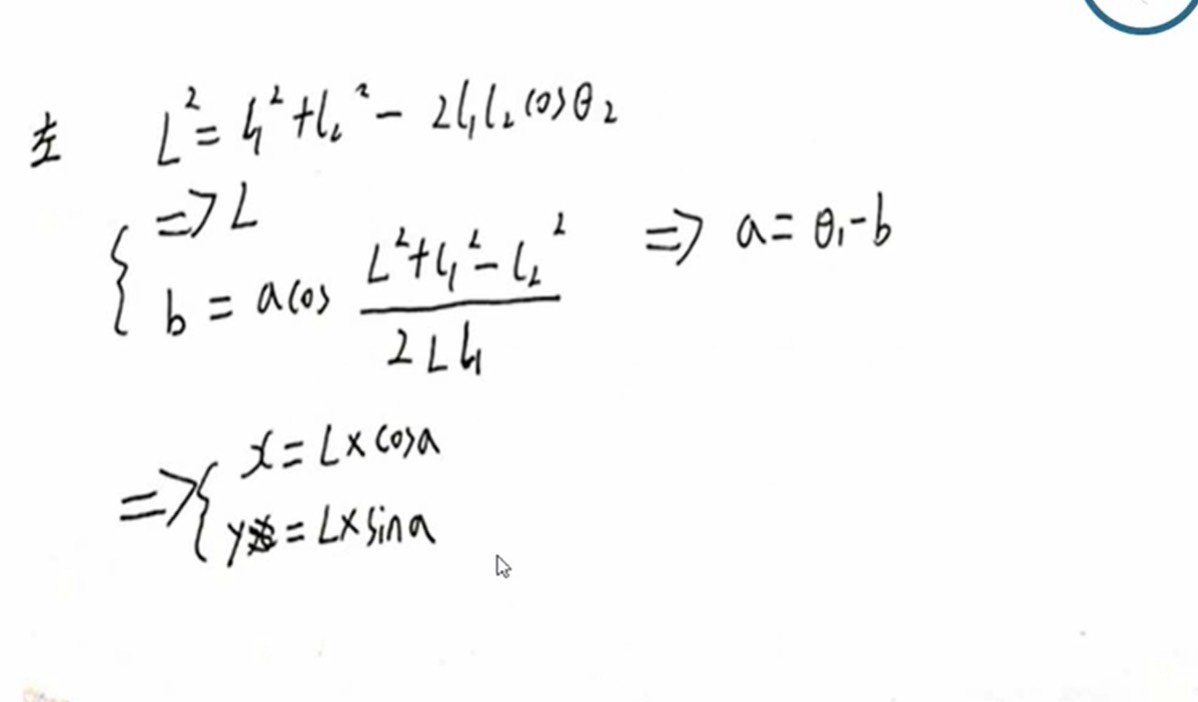 左 L² = l₁² + l₂² - 2l₁l₂cosθ₂
=> L
{ b = acos (L² + l₁² - l₂²) / (2Ll₁) => a = θ₁ - b
=> { x = L×cosa
y = L×sina